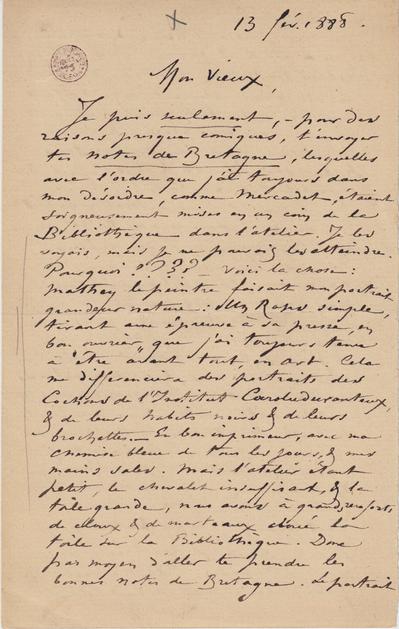 13 fév. 1888.
Mon vieux,
Je puis seulement, – pour des
raisons presque comiques, t'envoyer
tes notes de Bretagne, lesquelles
avec l'ordre que j'ai toujours dans
mon désordre, comme Mercadet, étaient
soigneusement mises en un coin de la
Bibliothèque dans l'atelier. Je les
voyais, mais je ne pouvais les atteindre.
Pourquoi ???? – Voici la chose:
Mathey le peintre faisait mon portrait
grandeur nature: Un Rops simple,
tirant une épreuve à sa presse, en
bon ouvrier, que j'ai toujours tenu
à être avant tout, en art. Cela
me différenciera des portraits des
Cochons de l'Institut Caroluduranteux,
& de leurs habits noirs & de leurs
brochettes. – En bon imprimeur, avec ma
chemise bleue de tous les jours, & mes
mains sales. Mais l'atelier étant
petit, le chevalet insuffisant, & la
toile grande, nous avons à grands renforts
de clous & de marteaux cloué la
toile sur la Bibliothèque. Donc
pas moyen d'aller te prendre les
bonnes notes de Bretagne. Le portrait